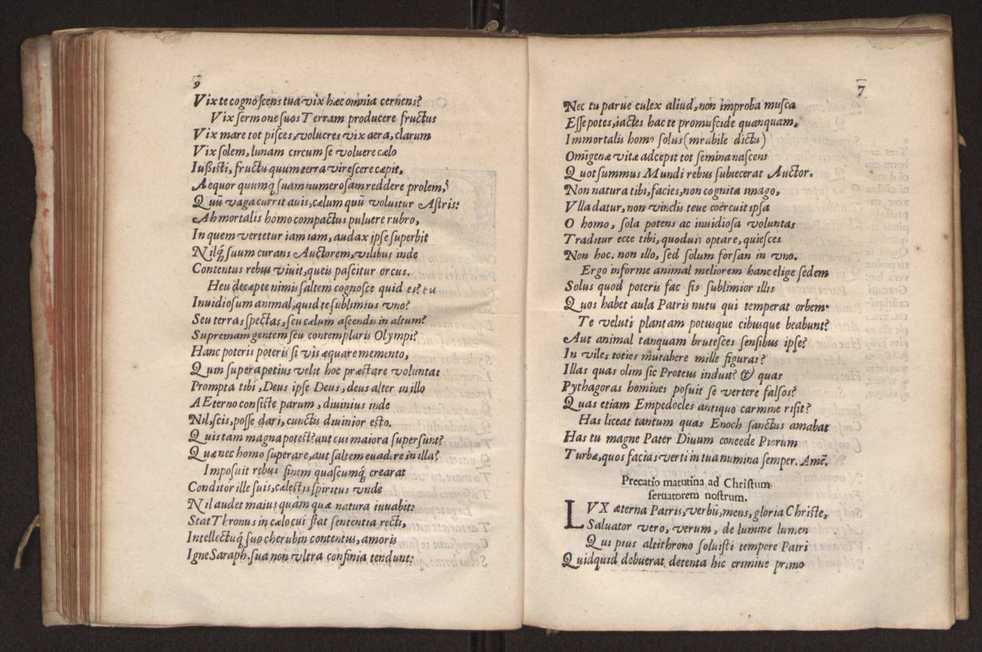 9
Vix te cognoscens tua vix hæc omnia cernens?
Vix sermone suos Terram producere fructus
Vix mare tot pisces, volucres vix aera, clarum
Vix solem, lunam circum se voluere cælo
Iussisti, fructu quum terra virescere cæpit,
Aequor quumq; suam numerosam reddere prolem,
Quū vaga currit auis, cælum quū voluitur Astris:
Ah mortalis homo compactus puluere rubro,
In quem vertetur iam iam, audax ipse superbit
Nilq; suum curans Auctorem, vilibus inde
Contentus rebus viuit, queis pascitur orcus.
Heu decepte nimis saltem cognosce quid es? tu
Inuidiosum animal, quid te sublimius vno?
Seu terras spectas, seu cælum ascendis in altum?
Supremam gentem seu contemplaris Olympi?
Hanc poteris poteris si vis æquare memento,
Qum superapotius velit hoc præstare voluntat
Prompta tibi, Deus ipse Deus, deus alter in illo
A Eterno consiste parum, diuinius inde
Nil, scis, posse dari, cunctis diuinior esto.
Quis tam magna potest? aut cui maiora supersunt?
Quæ nec homo superare, aut saltem euadere in illa?
Imposuit rebus finem quascumq; crearat
Conditor ille suis, cælestis spiritus vnde
Nil audet maius, quam quæ natura inuabit:
Stat Thronus in cælo cui stat sententia recti,
Intellectuq; suo cherubin contentus, amoris
Igne Saraph, sua non vltra confinia tendunt:
7
Nec tu parue culex aliud, non improba musca
Esse potes, iactes hac te promuscide quanquam,
Immortalis homo solus (mirabile dictu)
Omigenæ vitæ adcepit tot semina nascens
Quot summus Mundi rebus subiecerat Auctor.
Non natura tibi, facies, non cognita imago,
Vlla datur, non vinclis teue coercuit ipsa
O homo, sola potens ac inuidiosa voluntas
Traditur ecce tibi, quoduis optare, quiesces
Non hoc, non illo, sed solum forsan in vno.
Ergo informe animal meliorem hanc elige sedem
Solus quod poteris fac sis sublimior illis
Quos habet aula Patris nutu qui temperat orbem:
Te veluti plantam potusque cibusque beabunt?
Aut animal tanquam brutesces sensibus ipse?
In viles toties mutabere mille figuras?
Illas quas olim sic Proteus induit? & quas
Pythagoras homines posuit se vertere falsos?
Quas etiam Empedocles antiquo carmine risit?
Has liceat tantum quas Enoch sanctus amabat
Has tu magne Pater Diuum concede Piorum
Turbæ, quos facias verti in tua numina semper. Amē.
Precatio matutina ad Christum
seruatorem nostrum.
LVX æterna Patris, verbū, mens, gloria Christe,
Saluator vero, verum, de lumine lumen
Qui pius altithrono soluisti tempore Patri
Quidquid debuerat, detenta hic crimine primo